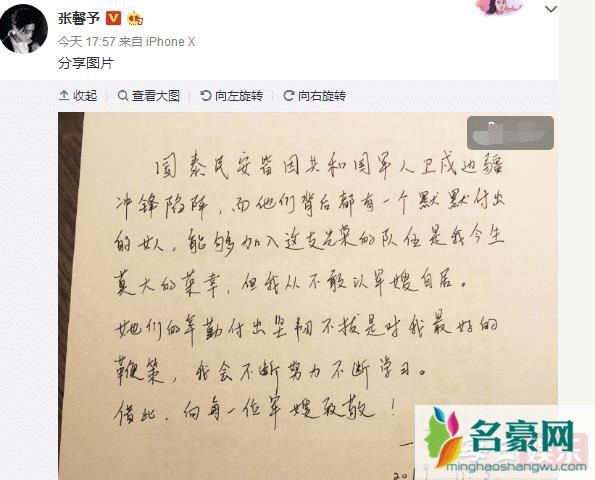 张馨予
今天 17:57 来自 iPhone X
分享图片
收起 查看大图 向左旋转 向右旋转
国泰民安皆因共和国军人卫戍边疆
冲锋陷阵,而他们背后都有一个默默付出
的女人,能够加入这支光荣的队伍是我今生
莫大的荣幸,但我从不敢以军嫂自居。
她们的辛勤付出坚韧不拔是对我最好的
鞭策,我会不断努力不断学习。
借此,向每一位军嫂致敬!
名豪网
minghaoshangwu.com